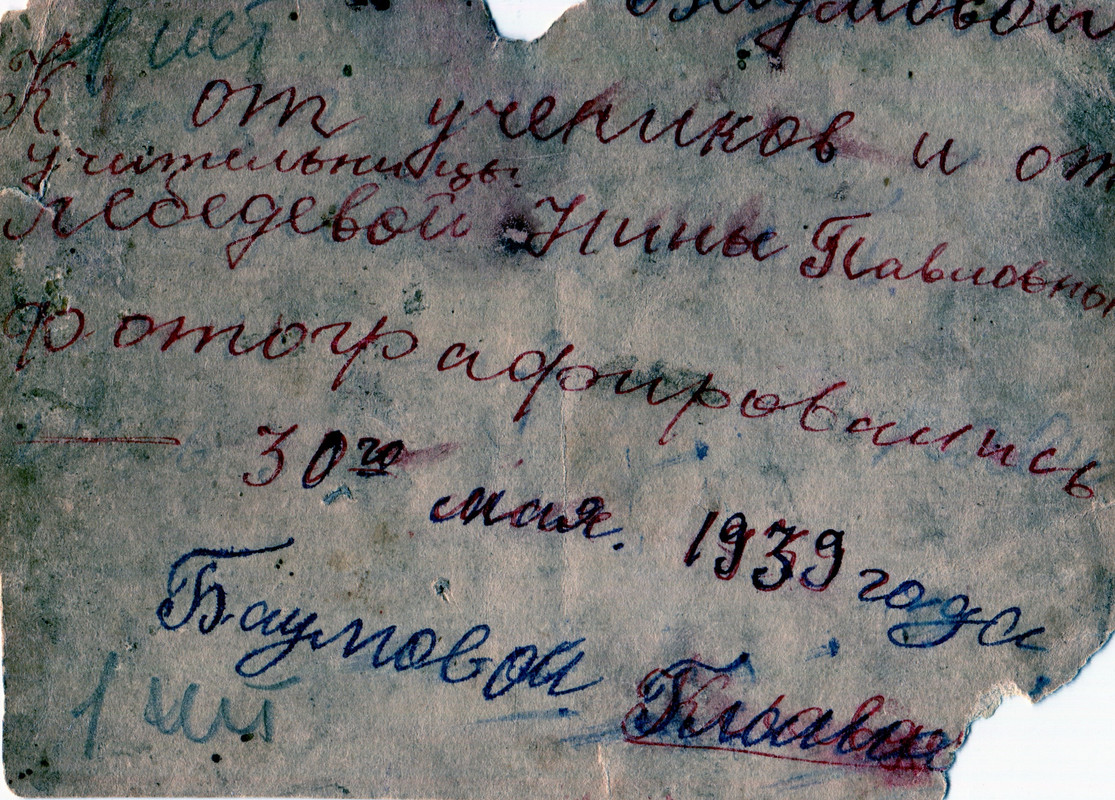 Баумовой
1 шт
от учеников и от
учительницы.
Лебедевой Нины Павловны
Фотографировались
30го мая. 1939 года
Баумовой
1 шт